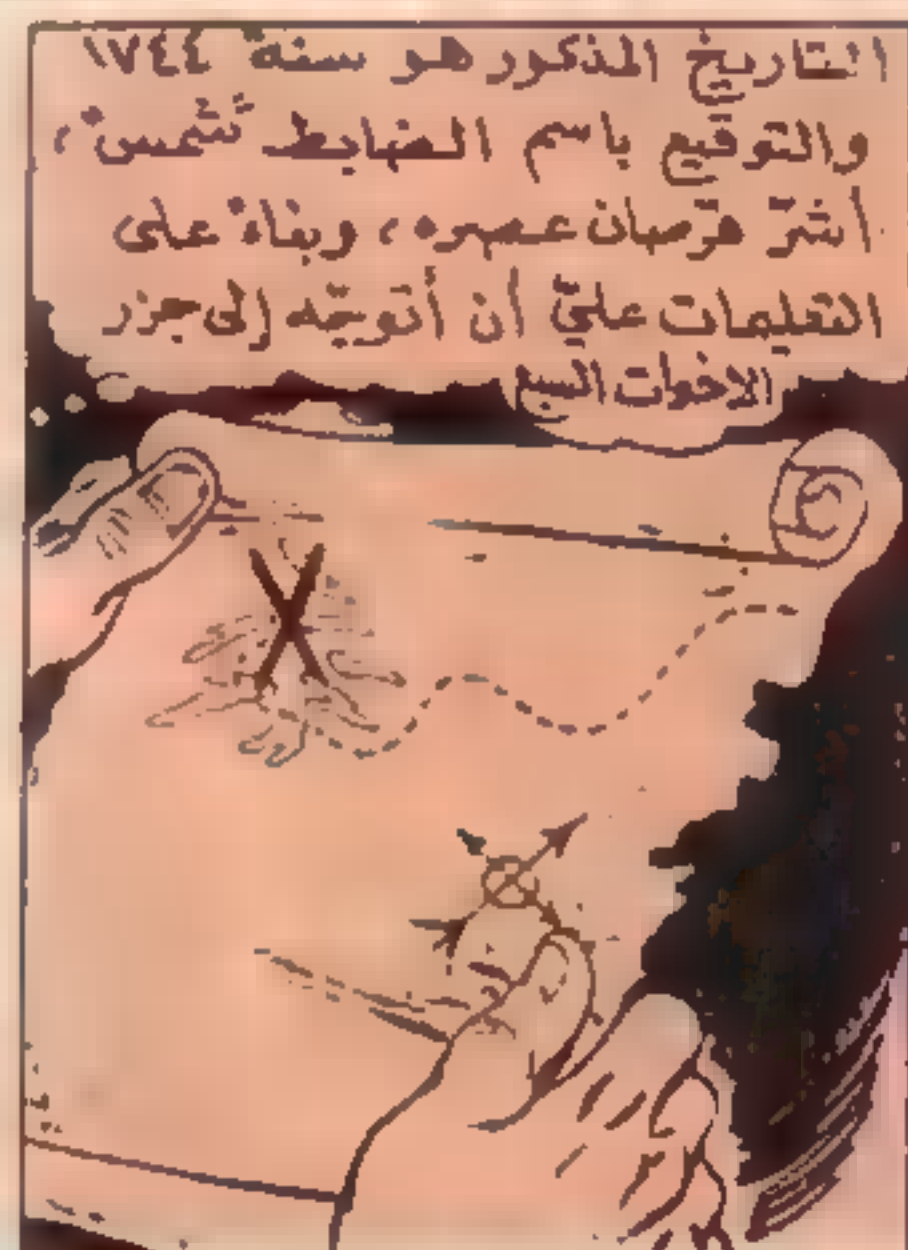 التاريخ المذكور هو سنة ١٧٤٤
والتوقيع باسم الضابط تشمس ،
أشرّ قرصان عصره ، وبناءً على
التعليمات عليّ أن أتوجّه إلى جزر
الاخوات السبع